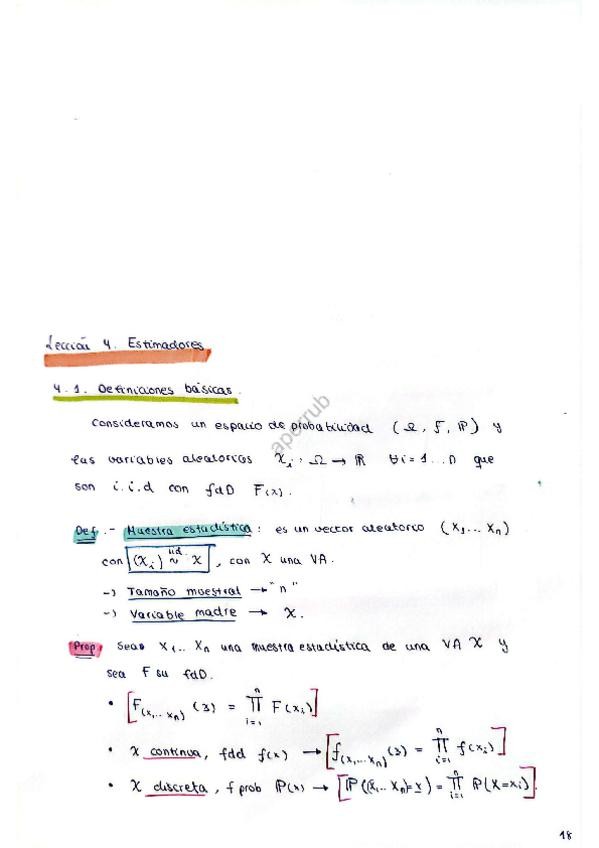 Lección 4. Estimadores
4.1. Definiciones básicas.
Consideramos un espacio de probabilidad (Ω, F, ℙ) y
las variables aleatorias X_i: Ω → ℝ ∀i=1...n que
son i.i.d con fdD F(x).
Def.- Muestra estadística: es un vector aleatorio (X_1... X_n)
con (X_i) iid ~ X, con X una VA.
-) Tamaño muestral → "n"
-) Variable madre → X.
Prop. Sean X_1... X_n una muestra estadística de una VA X y
sea F su fdD.
• [F_(X_1... X_n) (3) = ∏_{i=1}^{n} F(x_i)]
• X continua, fdd f(x) → [f_(X_1... X_n) (3) = ∏_{i=1}^{n} f(x_i)]
• X discreta, f prob ℙ(x) → [ℙ((X_1... X_n)=x) = ∏_{i=1}^{n} ℙ(X=x_i)].
aperrub
18